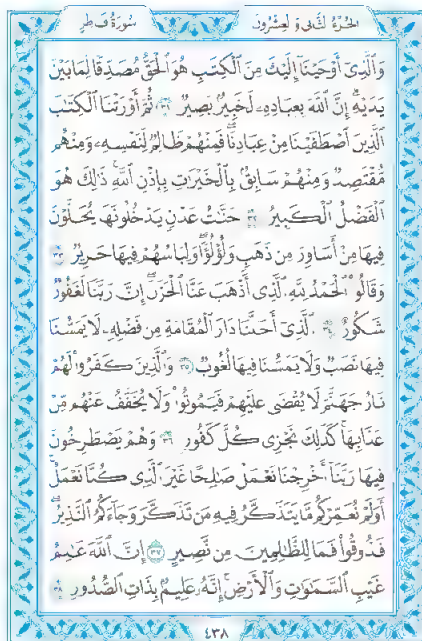 سورة فاطر الجزء الثاني والعشرون
وَالَّذِي أَوْحَيْنَا إِلَيْكَ مِنَ الْكِتَٰبِ هُوَ الْحَقُّ مُصَدِّقًا لِّمَا بَيْنَ
يَدَيْهِ إِنَّ اللَّهَ بِعِبَادِهِ لَخَبِيرٌ بَصِيرٌ ٣١ ثُمَّ أَوْرَثْنَا الْكِتَٰبَ
الَّذِينَ اصْطَفَيْنَا مِنْ عِبَادِنَا فَمِنْهُمْ ظَالِمٌ لِّنَفْسِهِ وَمِنْهُم
مُّقْتَصِدٌ وَمِنْهُمْ سَابِقٌ بِالْخَيْرَٰتِ بِإِذْنِ اللَّهِ ذَٰلِكَ هُوَ
الْفَضْلُ الْكَبِيرُ ٣٢ جَنَّٰتُ عَدْنٍ يَدْخُلُونَهَا يُحَلَّوْنَ
فِيهَا مِنْ أَسَاوِرَ مِن ذَهَبٍ وَلُؤْلُؤًا وَلِبَاسُهُمْ فِيهَا حَرِيرٌ ٣٣
وَقَالُوا الْحَمْدُ لِلَّهِ الَّذِي أَذْهَبَ عَنَّا الْحَزَنَ إِنَّ رَبَّنَا لَغَفُورٌ
شَكُورٌ ٣٤ الَّذِي أَحَلَّنَا دَارَ الْمُقَامَةِ مِن فَضْلِهِ لَا يَمَسُّنَا
فِيهَا نَصَبٌ وَلَا يَمَسُّنَا فِيهَا لُغُوبٌ ٣٥ وَالَّذِينَ كَفَرُوا لَهُمْ
نَارُ جَهَنَّمَ لَا يُقْضَىٰ عَلَيْهِمْ فَيَمُوتُوا وَلَا يُخَفَّفُ عَنْهُم مِّنْ
عَذَابِهَا كَذَٰلِكَ نَجْزِي كُلَّ كَفُورٍ ٣٦ وَهُمْ يَصْطَرِخُونَ
فِيهَا رَبَّنَا أَخْرِجْنَا نَعْمَلْ صَٰلِحًا غَيْرَ الَّذِي كُنَّا نَعْمَلُ
أَوَلَمْ نُعَمِّرْكُم مَّا يَتَذَكَّرُ فِيهِ مَن تَذَكَّرَ وَجَاءَكُمُ النَّذِيرُ
فَذُوقُوا فَمَا لِلظَّٰلِمِينَ مِن نَّصِيرٍ ٣٧ إِنَّ اللَّهَ عَٰلِمُ
غَيْبِ السَّمَٰوَٰتِ وَالْأَرْضِ إِنَّهُ عَلِيمٌ بِذَاتِ الصُّدُورِ ٣٨
٤٣٨